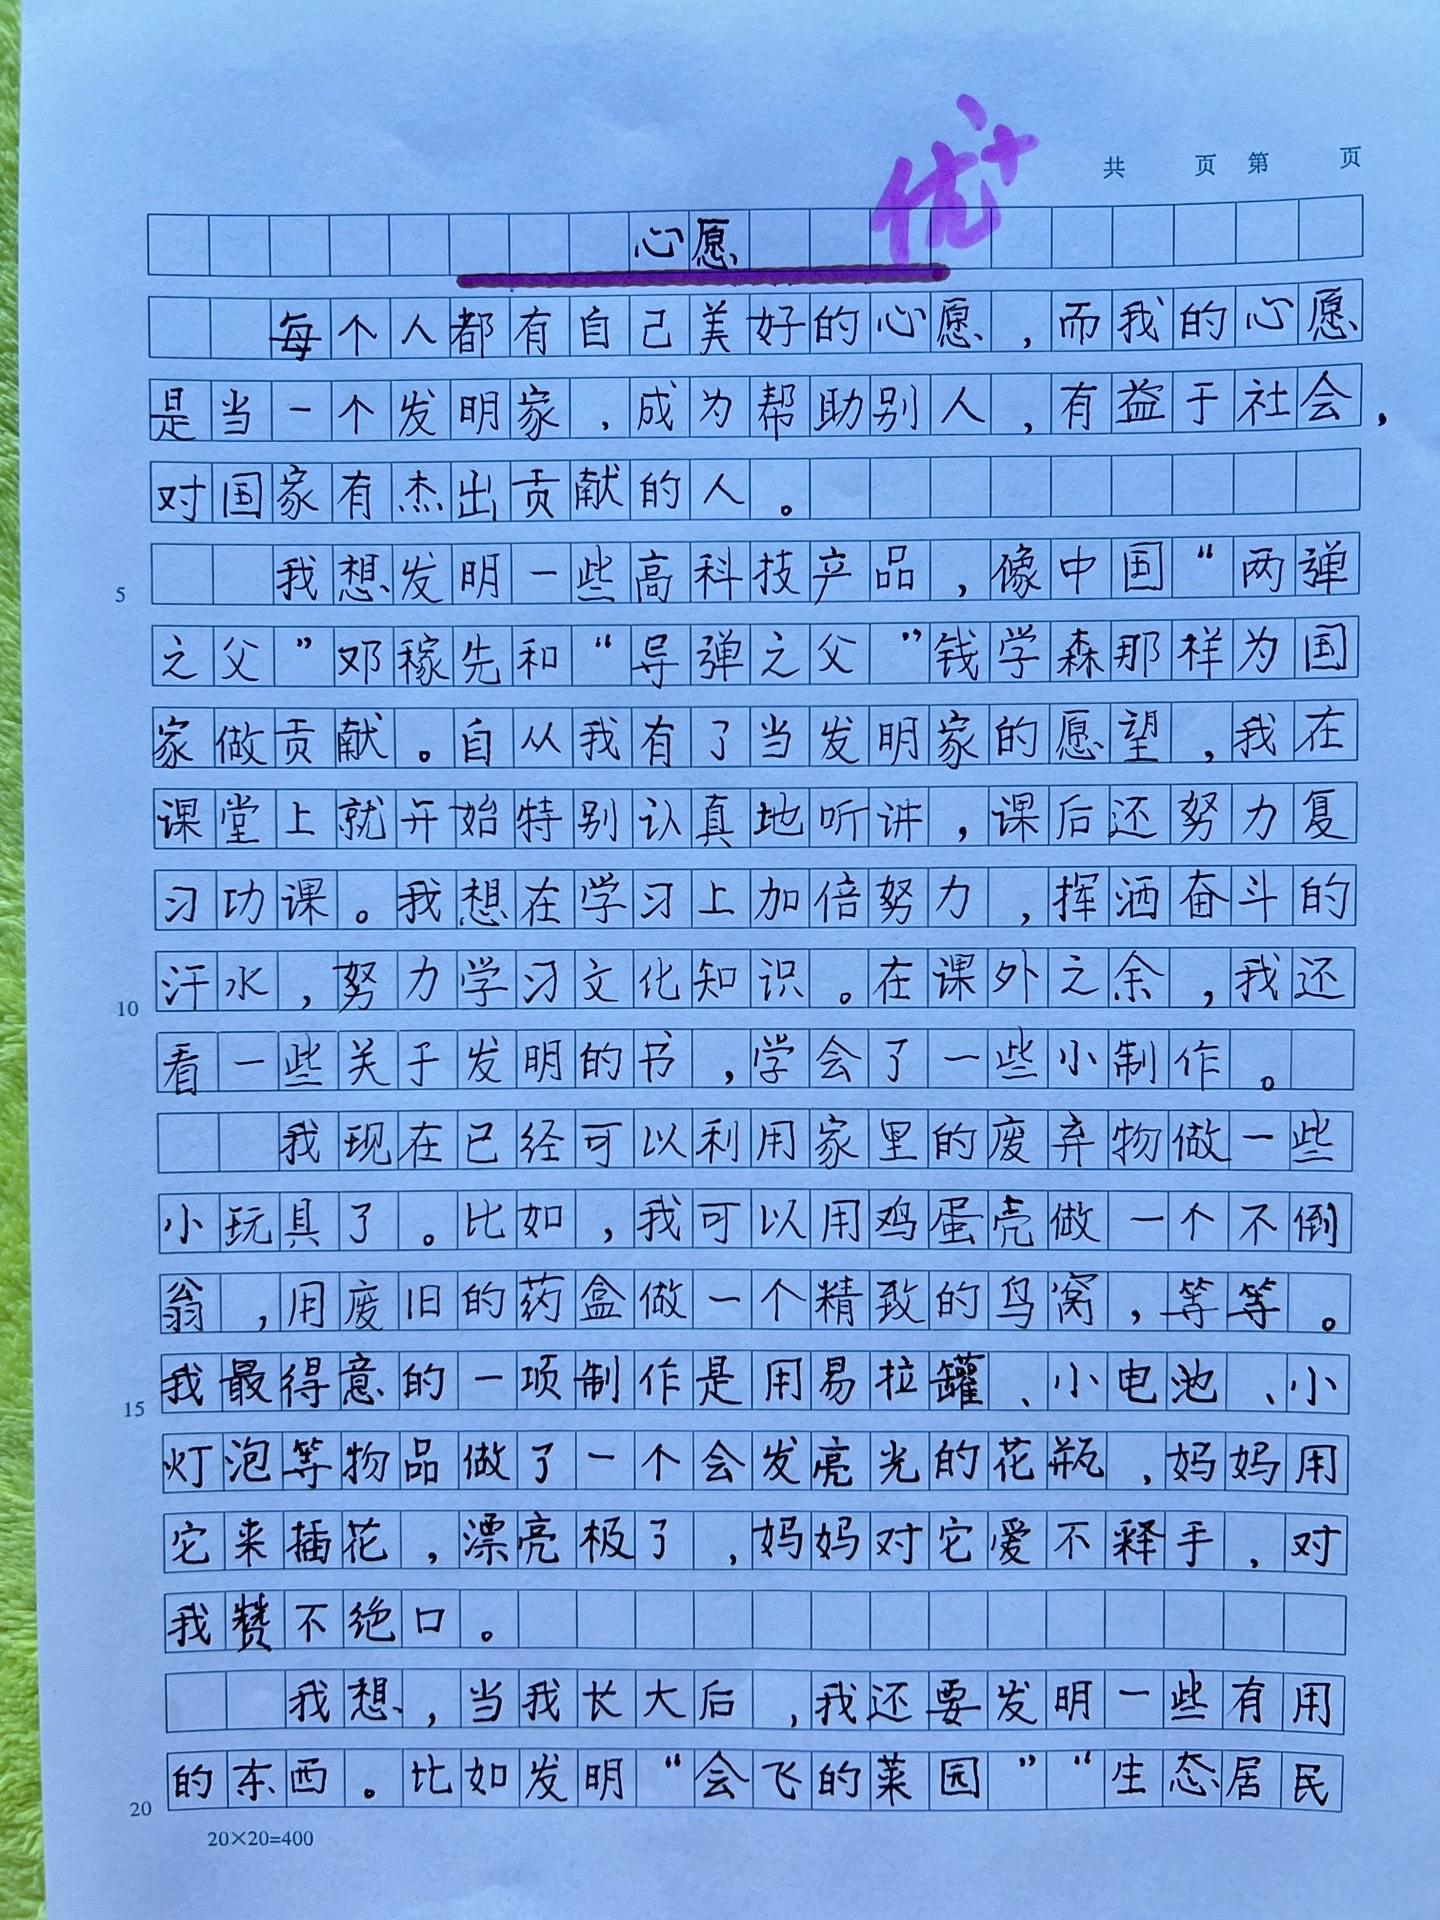 优+
共 页 第 页
心愿
每个人都有自己美好的心愿,而我的心愿
是当一个发明家,成为帮助别人,有益于社会,
对国家有杰出贡献的人。
我想发明一些高科技产品,像中国“两弹
5
之父”邓稼先和“导弹之父”钱学森那样为国
家做贡献。自从我有了当发明家的愿望,我在
课堂上就开始特别认真地听讲,课后还努力复
习功课。我想在学习上加倍努力,挥洒奋斗的
汗水,努力学习文化知识。在课外之余,我还
10
看一些关于发明的书,学会了一些小制作。
我现在已经可以利用家里的废弃物做一些
小玩具了。比如,我可以用鸡蛋壳做一个不倒
翁,用废旧的药盒做一个精致的鸟窝,等等。
我最得意的一项制作是用易拉罐、小电池、小
15
灯泡等物品做了一个会发亮光的花瓶,妈妈用
它来插花,漂亮极了,妈妈对它爱不释手,对
我赞不绝口。
我想,当我长大后,我还要发明一些有用
的东西。比如发明“会飞的菜园”“生态居民
20
20×20=400